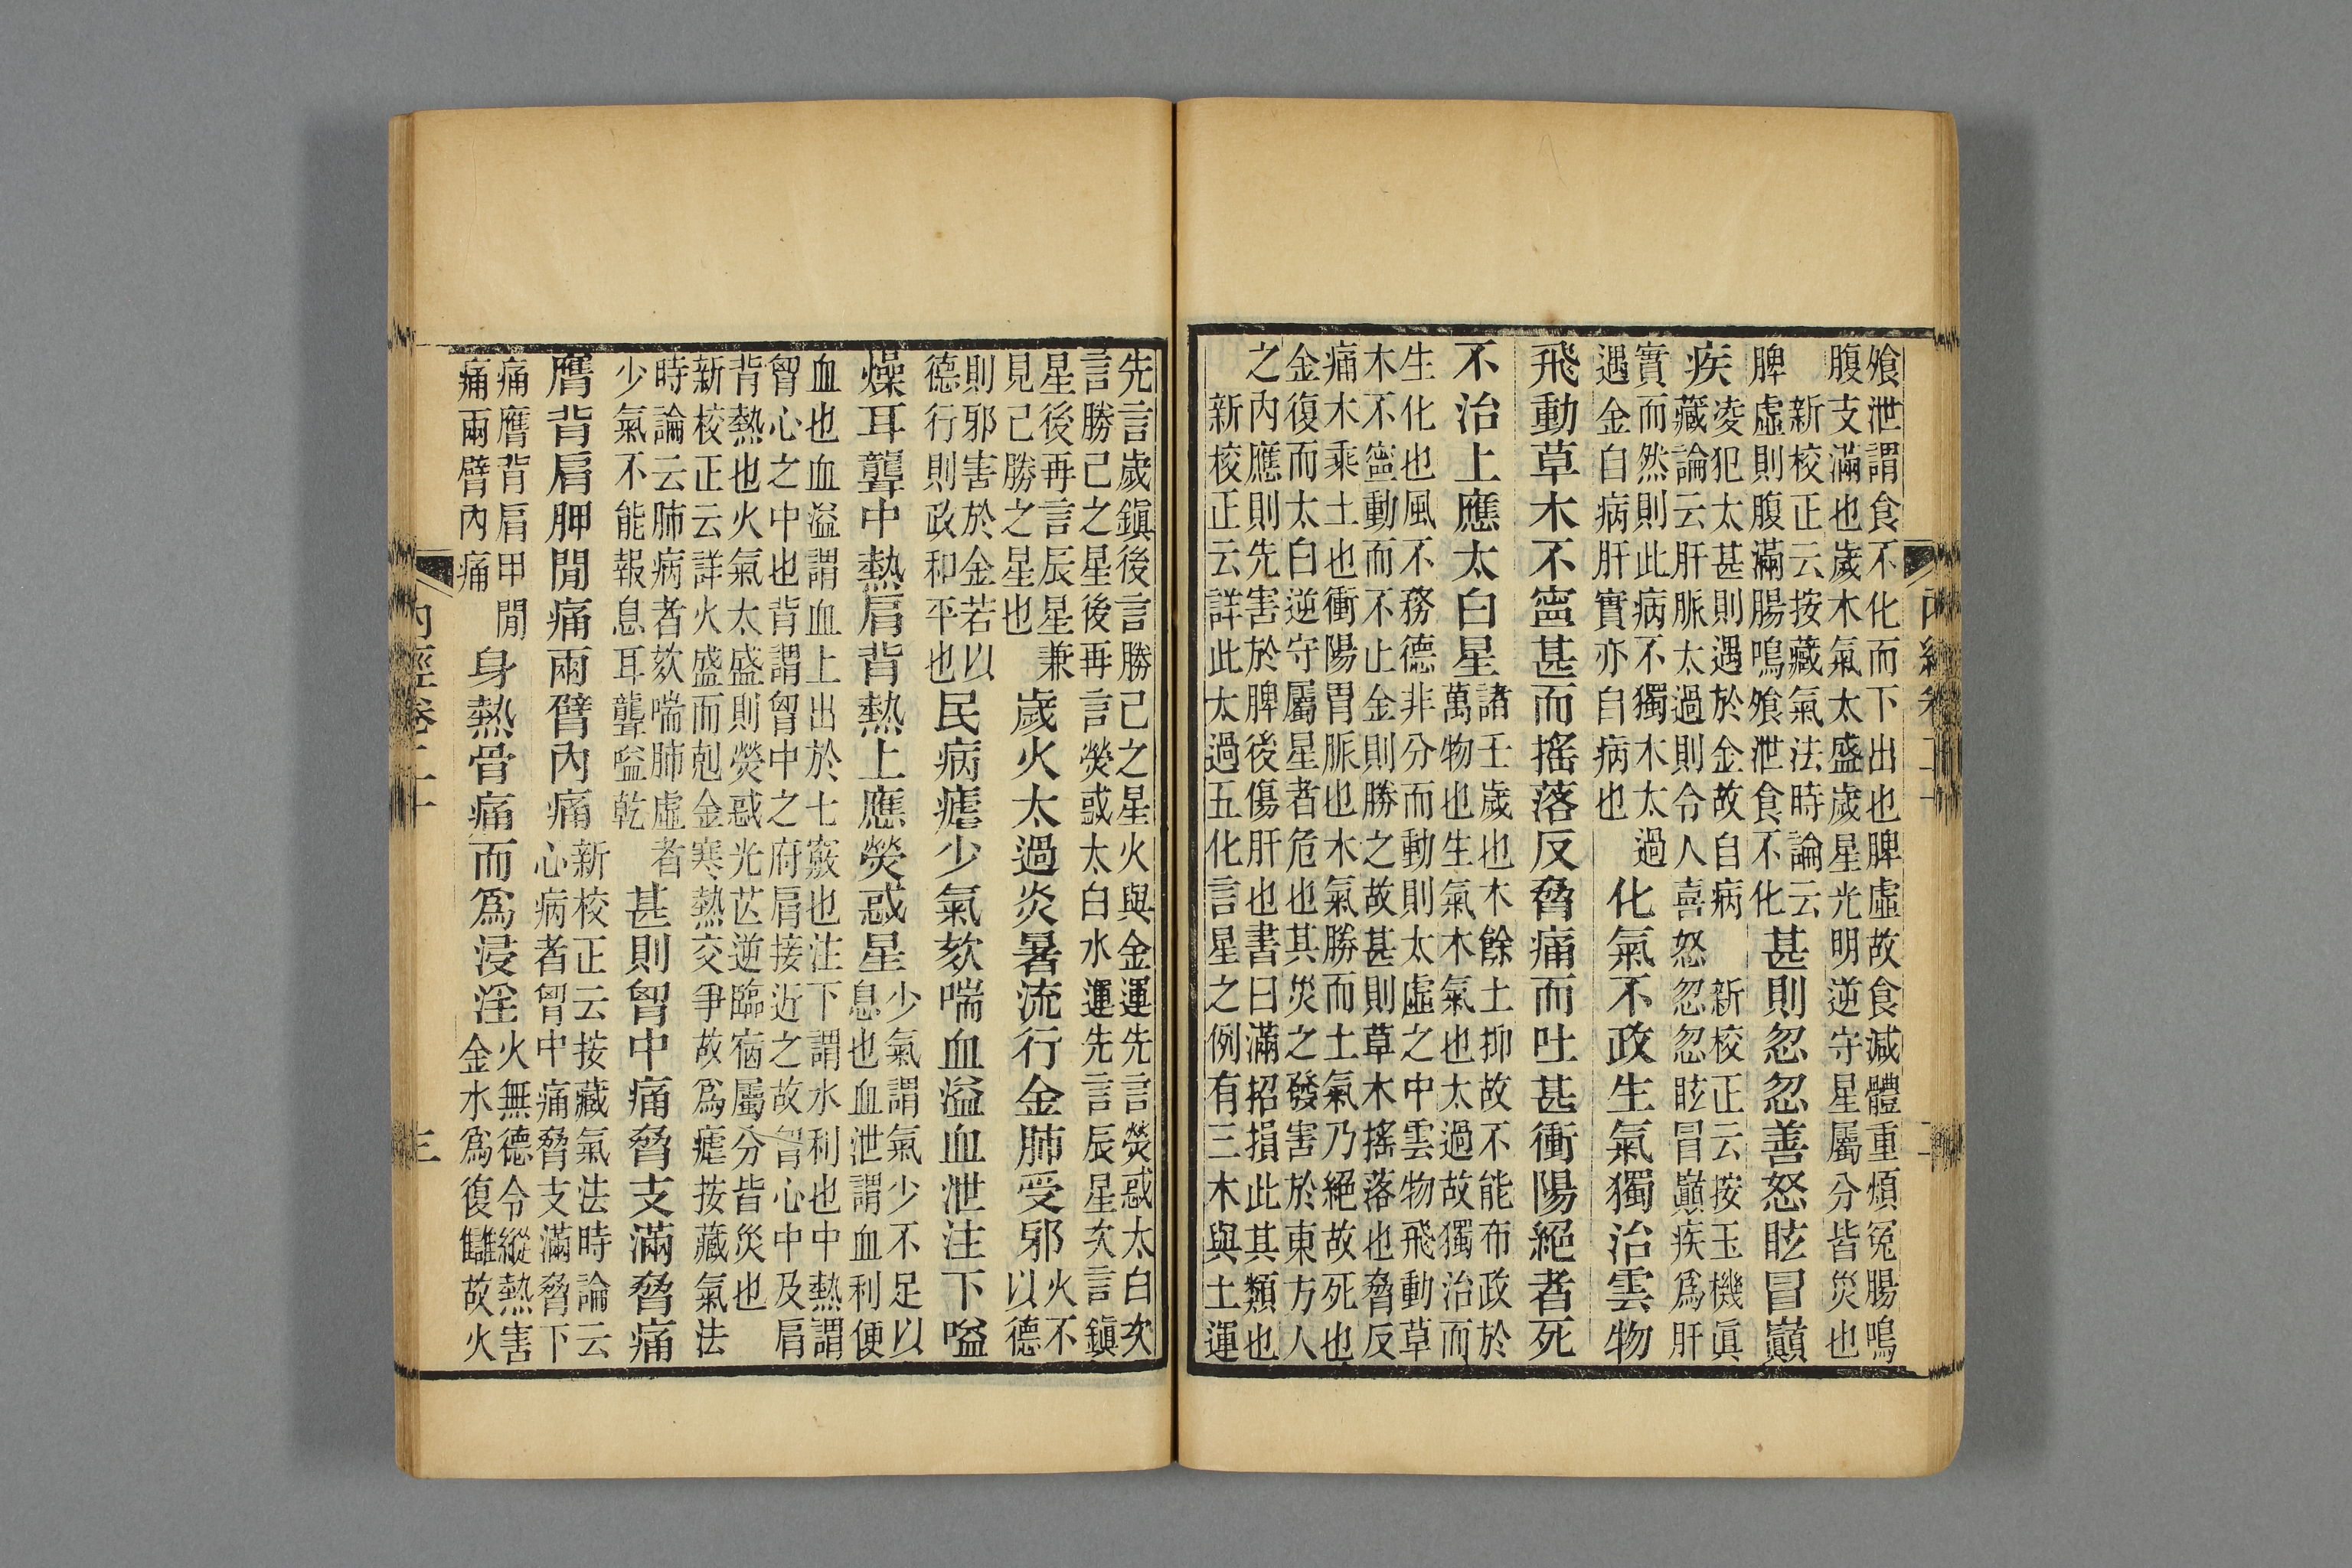 飧泄謂食不化而下出也脾虛故食減體重煩冤腸鳴
腹支滿也歲木氣太盛歲星光明逆守星屬分皆災也
新校正云按藏氣法時論云
脾虛則腹滿腸鳴飧泄食不化
甚則忽忽善怒眩冒巔
疾
凌犯太甚則遇於金故自病 新校正云按玉機眞
藏論云肝脈太過則令人喜怒忽忽眩冒巔疾爲肝
實而然則此病不獨木太過
遇金自病肝實亦自病也
化氣不政生氣獨治雲物
飛動草木不寍甚而搖落反脅痛而吐甚衝陽絕者死
不治上應太白星
諸壬歲也木餘土抑故不能布政於
萬物也生氣木氣也太過故獨治而
生化也風不務德非分而動則太虛之中雲物飛動草
木不寍動而不止金則勝之故甚則草木搖落也脅反
痛木乘土也衝陽胃脈也木氣勝而土氣乃絕故死也
金復而太白逆守屬星者危也其災之發害於東方人
之內應則先害於脾後傷肝也書曰滿招損此其類也
新校正云詳此太過五化言星之例有三木與土運
先言歲鎭後言勝己之星火與金運先言熒惑太白次
言勝己之星後再言熒惑太白水運先言辰星次言鎭
星後再言辰星兼
見己勝之星也
歲火太過炎暑流行金肺受邪
火不
以德
則邪害於金若以
德行則政和平也
民病瘧少氣欬喘血溢血泄注下嗌
燥耳聾中熱肩背熱上應熒惑星
少氣謂氣少不足以
息也血泄謂血利便
血也血溢謂血上出於七竅也注下謂水利也中熱謂
胷心之中也背謂胷中之府肩接近之故胷心中及肩
背熱也火氣太盛則熒惑光芒逆臨宿屬分皆災也
新校正云詳火盛而剋金寒熱交爭故爲瘧按藏氣法
時論云肺病者欬喘肺虛者
少氣不能報息耳聾嗌乾
甚則胷中痛脅支滿脅痛
膺背肩胛閒痛兩臂內痛
新校正云按藏氣法時論云
心病者胷中痛脅支滿脅下
痛膺背肩甲閒
痛兩臂內痛
身熱骨痛而爲浸淫
火無德令縱熱害
金水爲復讎故火
內經卷二十
三